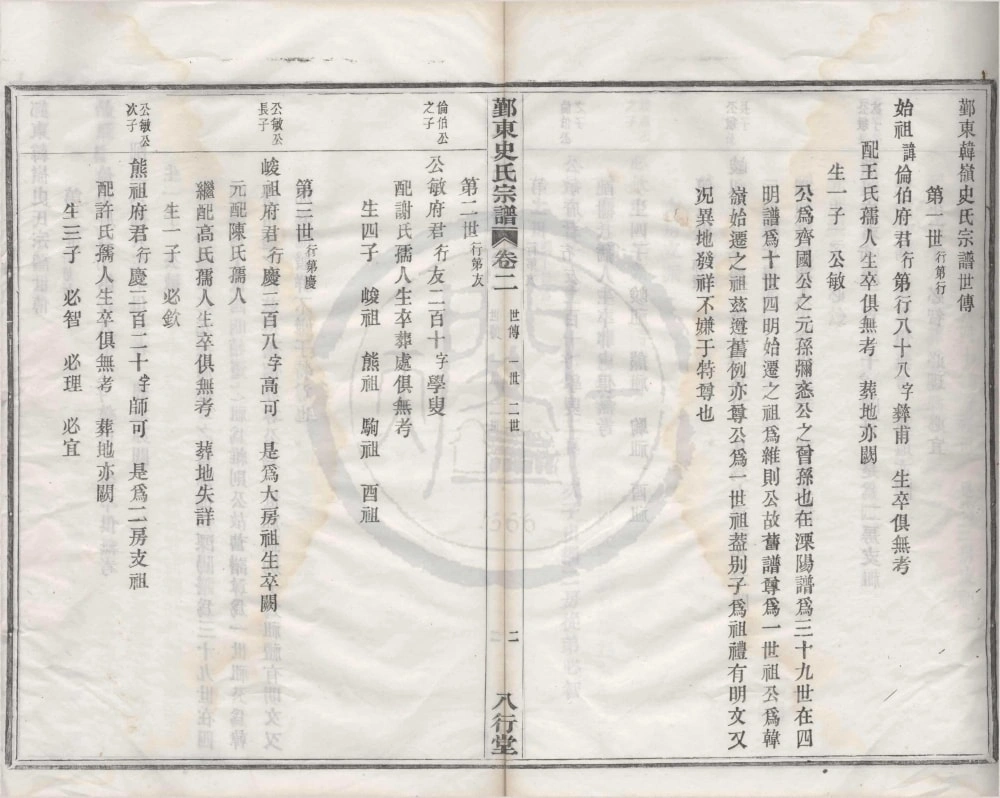 鄞東韓嶺史氏宗譜世傳
第一世行第行
始祖諱倫伯府君行第行八十八字彝甫　生卒俱無考
配王氏孺人生卒俱無考　葬地亦闕
生一子　公敏
公為齊國公之元孫彌忞公之曾孫也在溧陽譜為三十九世在四
明譜為十世四明始遷之祖為雒則公故舊譜尊為一世祖公為韓
嶺始遷之祖玆遵舊例亦尊公為一世祖葢別子為祖禮有明文又
况異地發祥不嫌于特尊也
鄞東史氏宗譜　卷二　世傳　一世　二世　二　八行堂
第二世行第友
倫伯公之子
公敏府君行友二百十字學叟
配謝氏孺人生卒葬處俱無考
生四子　峻祖　熊祖　駒祖　酉祖
第三世行第慶
公敏公長子
峻祖府君行慶二百八字高可　是為大房祖生卒闕
元配陳氏孺人
繼配高氏孺人生卒俱無考　葬地失詳
生一子　必欽
公敏公次子
熊祖府君行慶二百二十字師可　是為二房支祖
配許氏孺人生卒俱無考　葬地亦闕
生三子　必智　必理　必宜